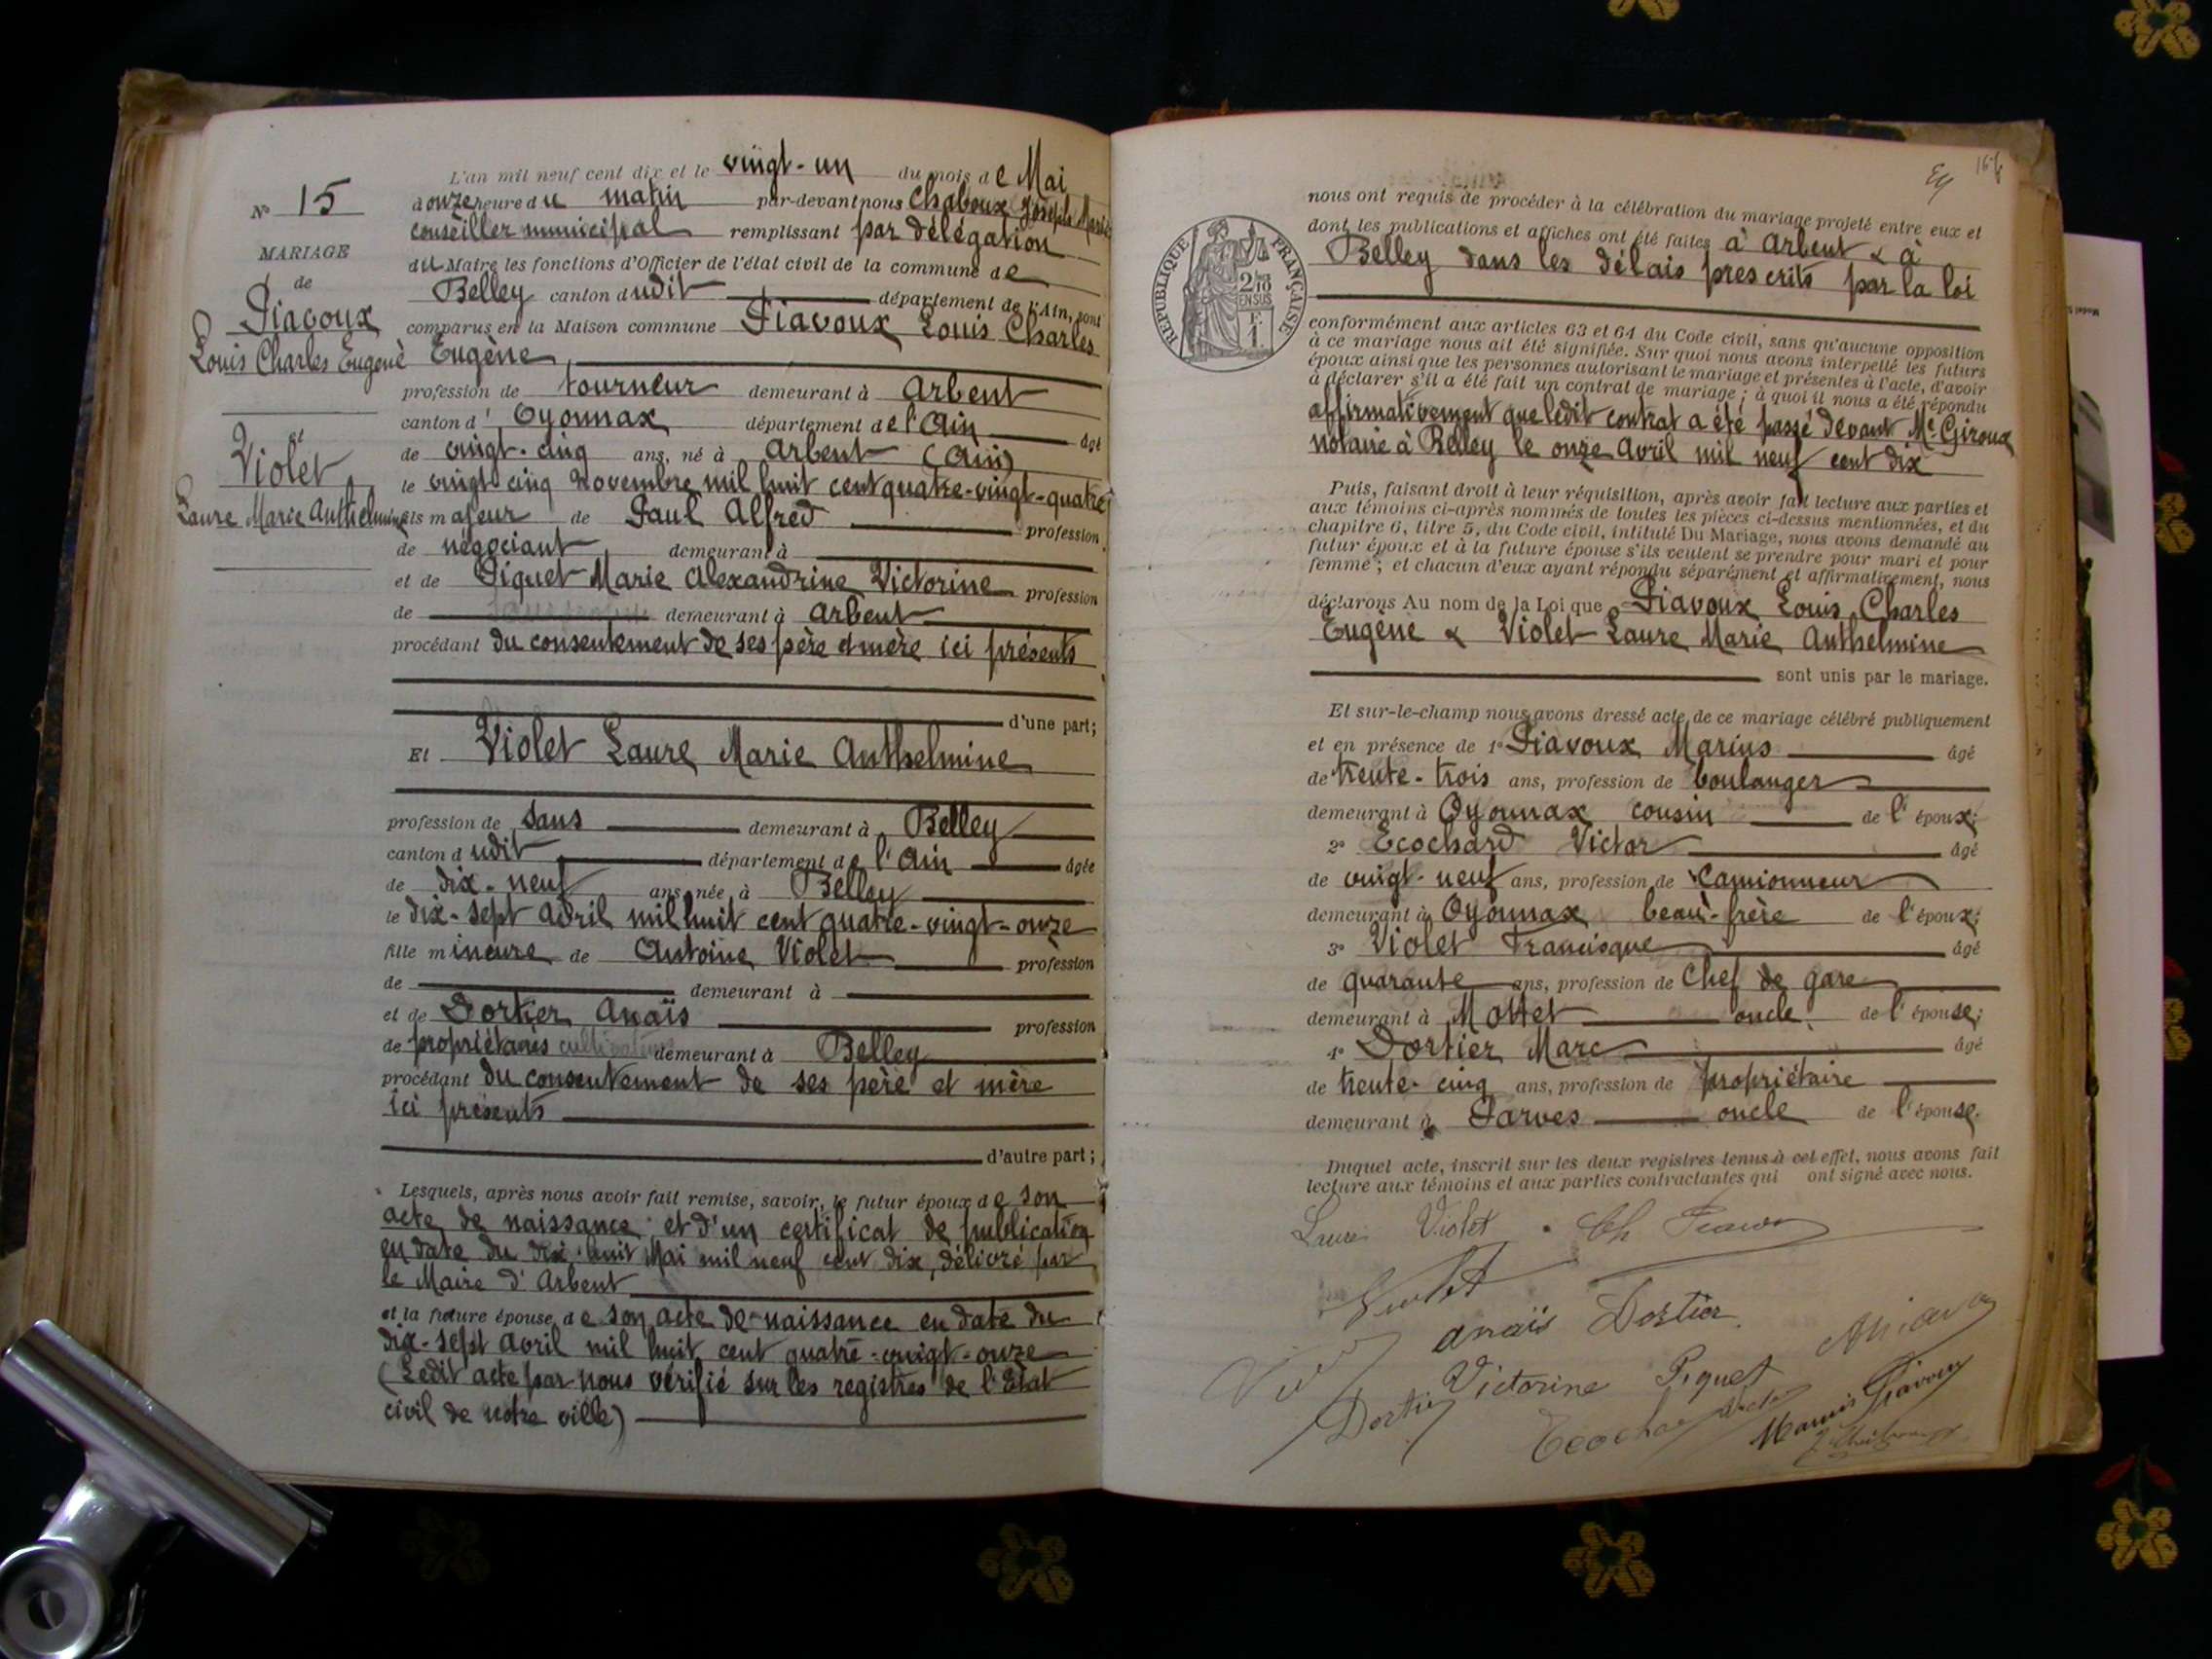 L'an mil neuf cent dix et le vingt-un du mois de Mai
à onze heure du matin par-devant nous Chaboux Joseph Marie
conseiller municipal remplissant par délégation
du Maire les fonctions d'Officier de l'état civil de la commune de
Belley canton dudit département de l'Ain, sont
comparus en la Maison commune Piavoux Louis Charles
Eugène
profession de tourneur demeurant à Arbent
canton d'Oyonnax département de l'Ain âgé
de vingt-cinq ans, né à Arbent (Ain)
le vingt cinq Novembre mil huit cent quatre-vingt-quatre
fils majeur de Paul Alfred profession
de négociant demeurant à
et de Piquet Marie Alexandrine Victorine profession
de demeurant à Arbent
procédant du consentement de ses père et mère ici présents
d'une part;
Et Violet Laure Marie Anthelmine
profession de sans demeurant à Belley
canton dudit département de l'Ain âgée
de dix-neuf ans, née à Belley
le dix-sept Avril mil huit cent quatre-vingt-onze
fille mineure de Antoine Violet profession
de demeurant à
et de Dortier Anaïs profession
de propriétaires cultivateurs demeurant à Belley
procédant du consentement de ses père et mère
ici présents
d'autre part;
Lesquels, après nous avoir fait remise, savoir, le futur époux de son
acte de naissance et d'un certificat de publication
en date du dix-huit Mai mil neuf cent dix, délivré par
le Maire d'Arbent
et la future épouse, de son acte de naissance en date du
dix-sept avril mil huit cent quatre-vingt-onze
(Ledit acte par nous vérifié sur les registres de l'Etat
civil de notre ville)
N° 15
MARIAGE
de
Piavoux
Louis Charles Eugène
et
Violet
Laure Marie Anthelmine
nous ont requis de procéder à la célébration du mariage projeté entre eux et
dont les publications et affiches ont été faites à Arbent & à
Belley dans les délais prescrits par la loi
conformément aux articles 63 et 64 du Code civil, sans qu'aucune opposition
à ce mariage nous ait été signifiée. Sur quoi nous avons interpellé les futurs
époux ainsi que les personnes autorisant le mariage et présentes à l'acte, d'avoir
à déclarer s'il a été fait un contrat de mariage; à quoi il nous a été répondu
affirmativement que ledit contrat a été passé devant Me Giroux
notaire à Belley le onze Avril mil neuf cent dix
Puis, faisant droit à leur réquisition, après avoir fait lecture aux parties et
aux témoins ci-après nommés de toutes les pièces ci-dessus mentionnées, et du
chapitre 6, titre 5, du Code civil, intitulé Du Mariage, nous avons demandé au
futur époux et à la future épouse s'ils veulent se prendre pour mari et pour
femme; et chacun d'eux ayant répondu séparément et affirmativement, nous
déclarons Au nom de la Loi que Piavoux Louis Charles
Eugène & Violet Laure Marie Anthelmine
sont unis par le mariage.
Et sur-le-champ nous avons dressé acte de ce mariage célébré publiquement
et en présence de 1° Piavoux Marius âgé
de trente-trois ans, profession de boulanger
demeurant à Oyonnax cousin de l'époux;
2° Ecochard Victor âgé
de vingt-neuf ans, profession de Camionneur
demeurant à Oyonnax beau-frère de l'époux;
3° Violet Francisque âgé
de quarante ans, profession de Chef de gare
demeurant à Mottet oncle de l'épouse;
4° Dortier Marc âgé
de trente-cinq ans, profession de propriétaire
demeurant à Parves oncle de l'épouse.
Duquel acte, inscrit sur les deux registres tenus à cet effet, nous avons fait
lecture aux témoins et aux parties contractantes qui ont signé avec nous.
Laure Violet
Violet
Anaïs Dortier
Victorine Piquet
Dortier
Marius Piavoux
RÉPUBLIQUE FRANÇAISE
2/10
EN SUS
F.
1.